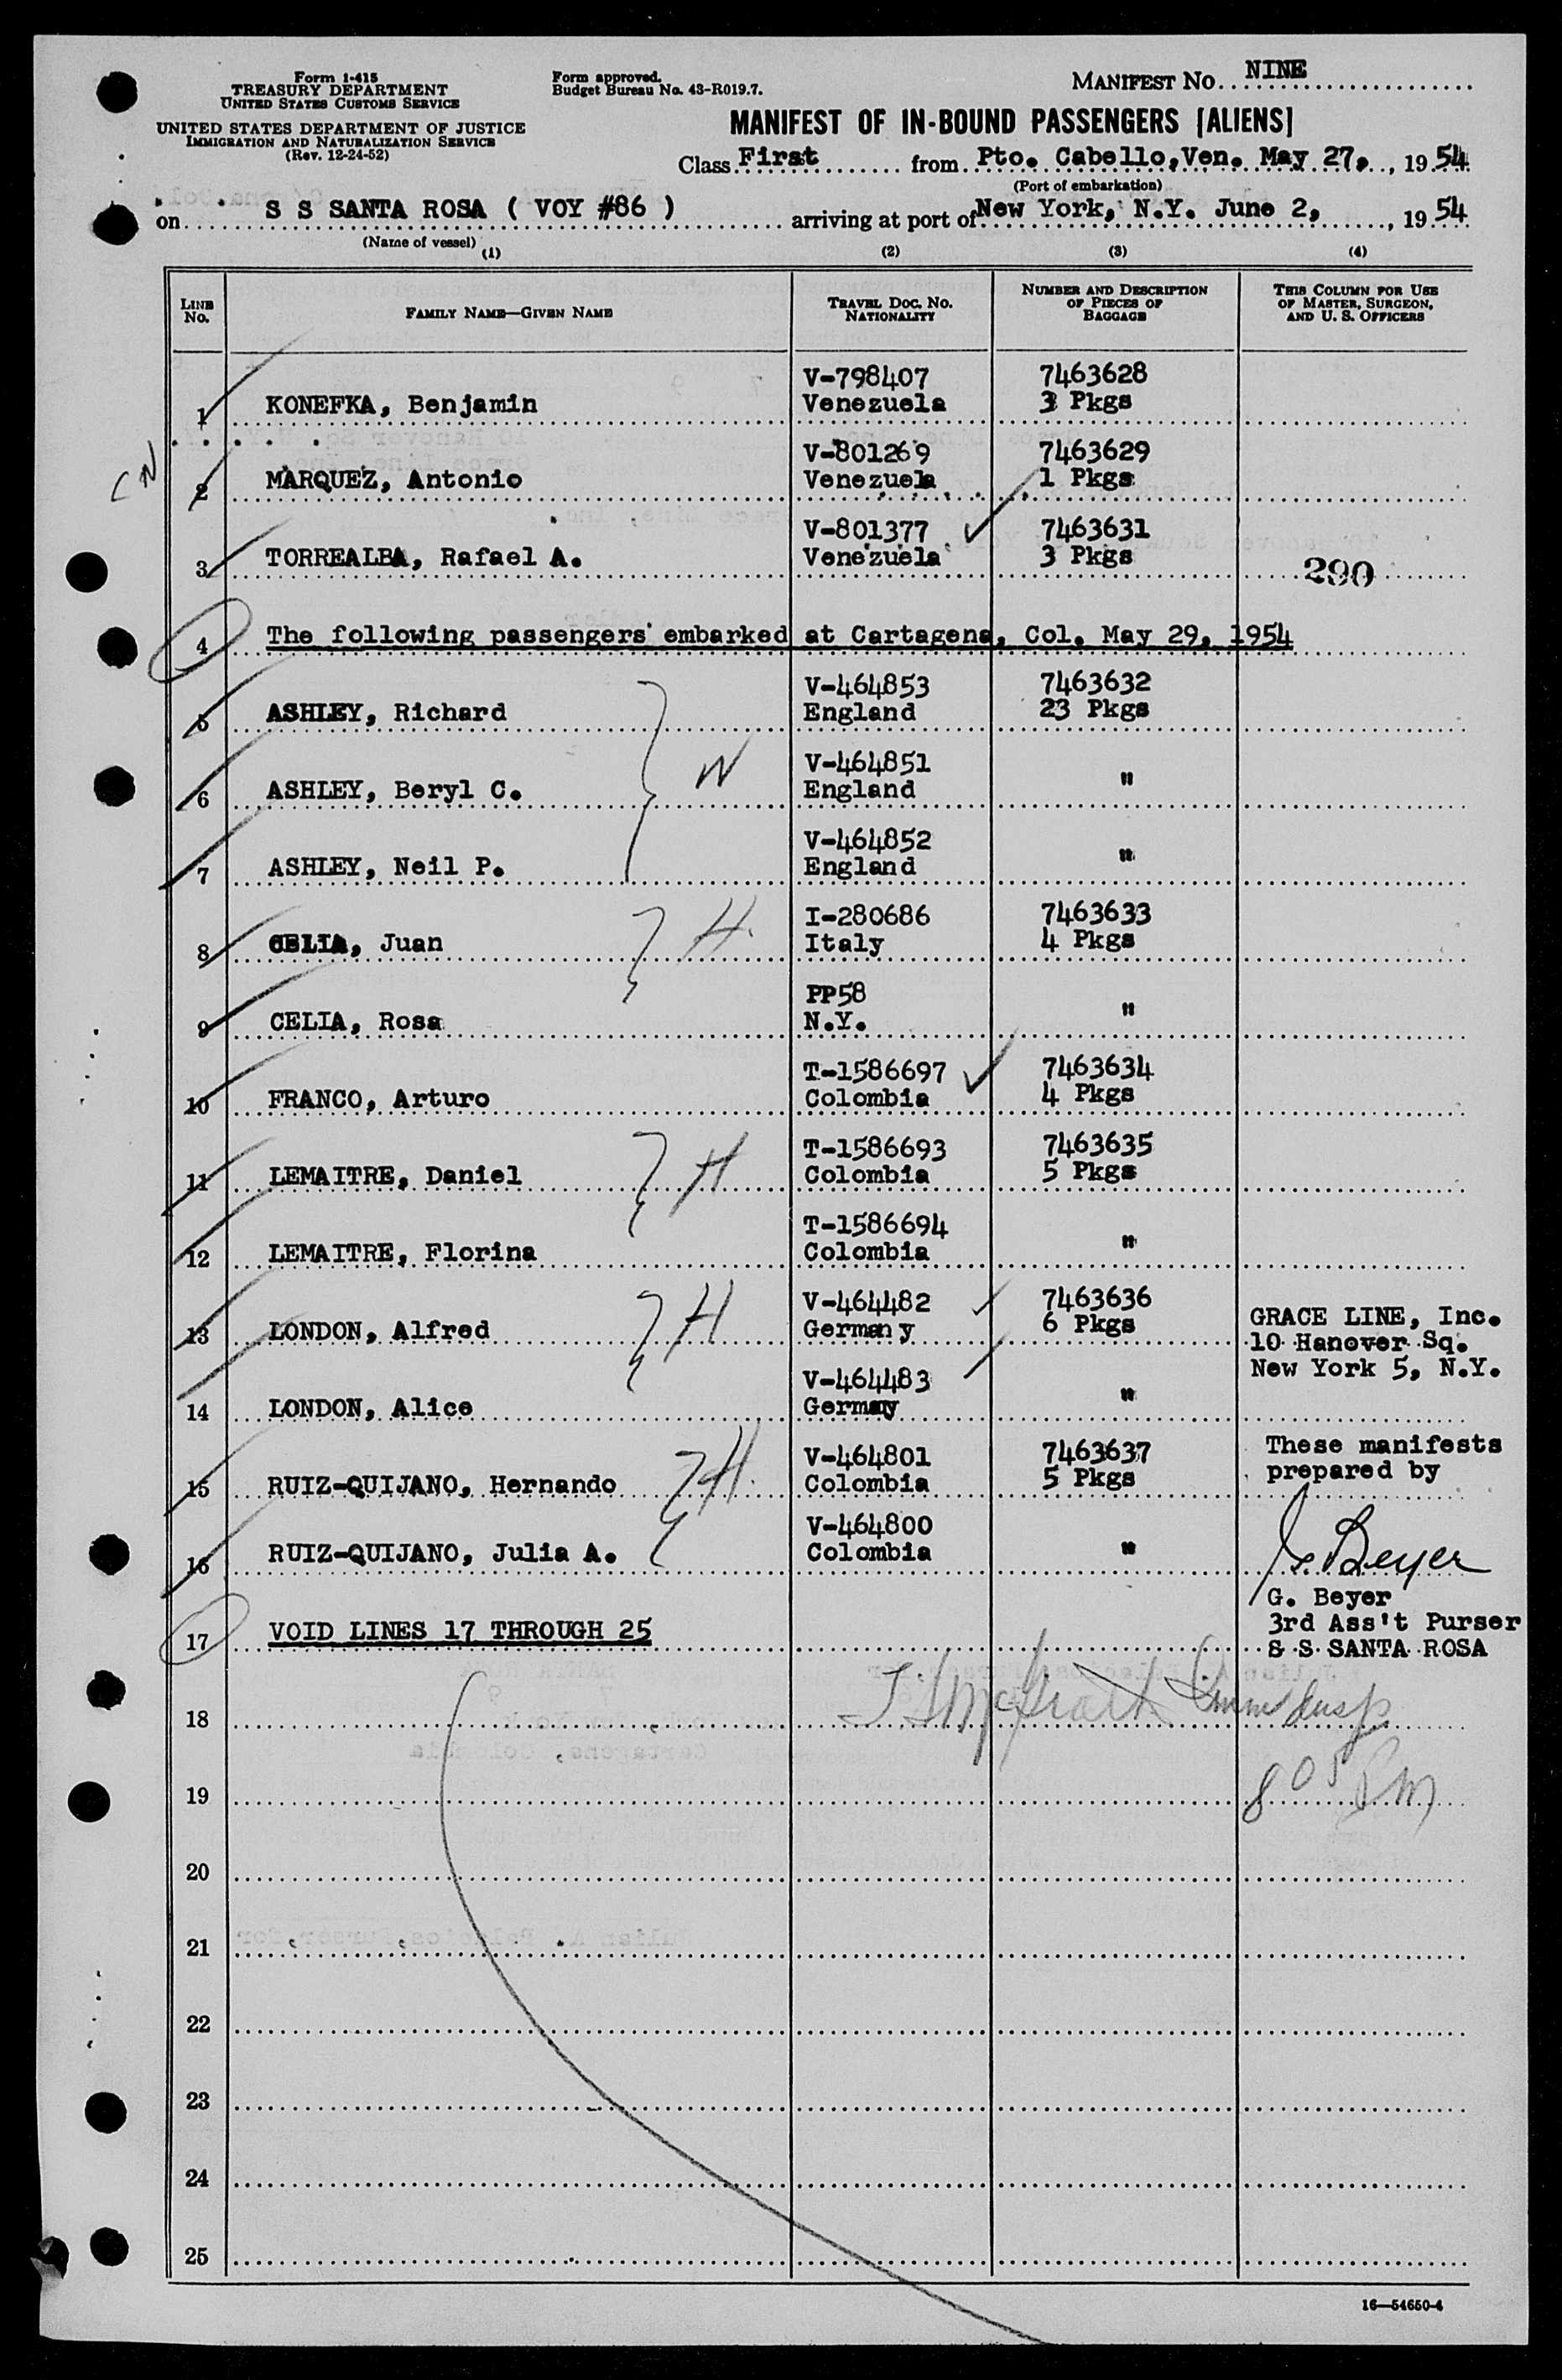 Form I-415
TREASURY DEPARTMENT
UNITED STATES CUSTOMS SERVICE
UNITED STATES DEPARTMENT OF JUSTICE
IMMIGRATION AND NATURALIZATION SERVICE
(Rev. 12-24-52)
Form approved.
Budget Bureau No. 43-R019.7.
MANIFEST NO. NINE
MANIFEST OF IN-BOUND PASSENGERS [ALIENS]
Class First from Pto. Cabello, Ven. May 27, , 19 54
(Port of embarkation)
on S S SANTA ROSA ( VOY #86 ) arriving at port of New York, N.Y. June 2, , 19 54
(Name of vessel)
(1) (2) (3) (4)
LINE NO. FAMILY NAME—GIVEN NAME TRAVEL DOC. NO. NATIONALITY NUMBER AND DESCRIPTION OF PIECES OF BAGGAGE THIS COLUMN FOR USE OF MASTER, SURGEON, AND U. S. OFFICERS
V-798407 7463628
1 KONEFKA, Benjamin Venezuela 3 Pkgs
V-801269 7463629
2 MARQUEZ, Antonio Venezuela 1 Pkgs
V-801377 7463631
3 TORREALBA, Rafael A. Venezuela 3 Pkgs 290
4 The following passengers embarked at Cartagena, Col. May 29, 1954
V-464853 7463632
5 ASHLEY, Richard England 23 Pkgs
V-464851
6 ASHLEY, Beryl C. W England "
V-464852
7 ASHLEY, Neil P. England "
I-280686 7463633
8 CELIA, Juan H. Italy 4 Pkgs
PP58
9 CELIA, Rosa N.Y. "
T-1586697 7463634
10 FRANCO, Arturo Colombia 4 Pkgs
T-1586693 7463635
11 LEMAITRE, Daniel H Colombia 5 Pkgs
T-1586694
12 LEMAITRE, Florina Colombia "
V-464482 7463636
13 LONDON, Alfred H Germany 6 Pkgs
GRACE LINE, Inc.
10 Hanover Sq.
New York 5, N.Y.
V-464483
14 LONDON, Alice Germany "
V-464801 7463637
15 RUIZ-QUIJANO, Hernando H. Colombia 5 Pkgs
These manifests
prepared by
V-464800
16 RUIZ-QUIJANO, Julia A. Colombia "
G. Beyer
G. Beyer
3rd Ass't Purser
S S SANTA ROSA
17 VOID LINES 17 THROUGH 25
18
8 05 PM
19
20
21
22
23
24
25
16—54650-4